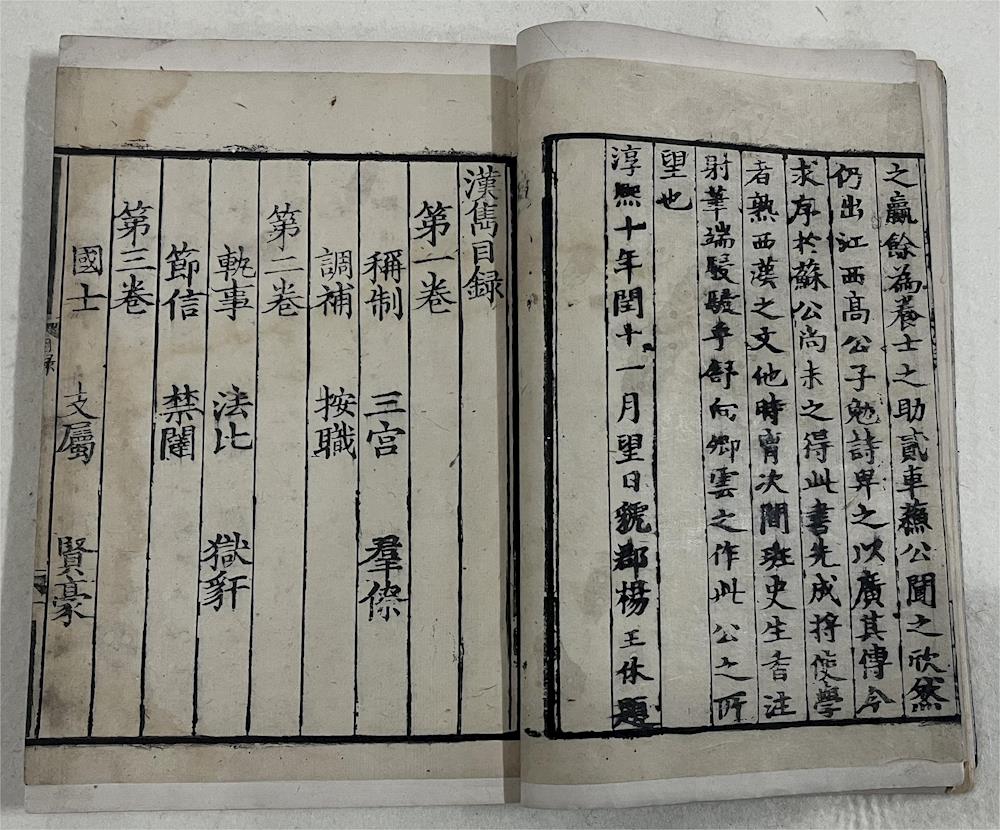 之贏餘為養士之助貳車蘓公聞之欣然
仍出江西高公子勉詩畀之以廣其傳今
求序於蘇公尚未之得此書先成將使學
者熟西漢之文他時胷次間班史生香注
射筆端駸駸乎舒向卿雲之作此公之所
望也
淳熙十年閏十一月望日虢郡楊王休題
漢雋目録
第一卷
稱制 三宫 羣傺
調補 按職
第二卷
軌事 法比 獄豻
節信 禁闥
第三卷
國士 支屬 賢豪
目録